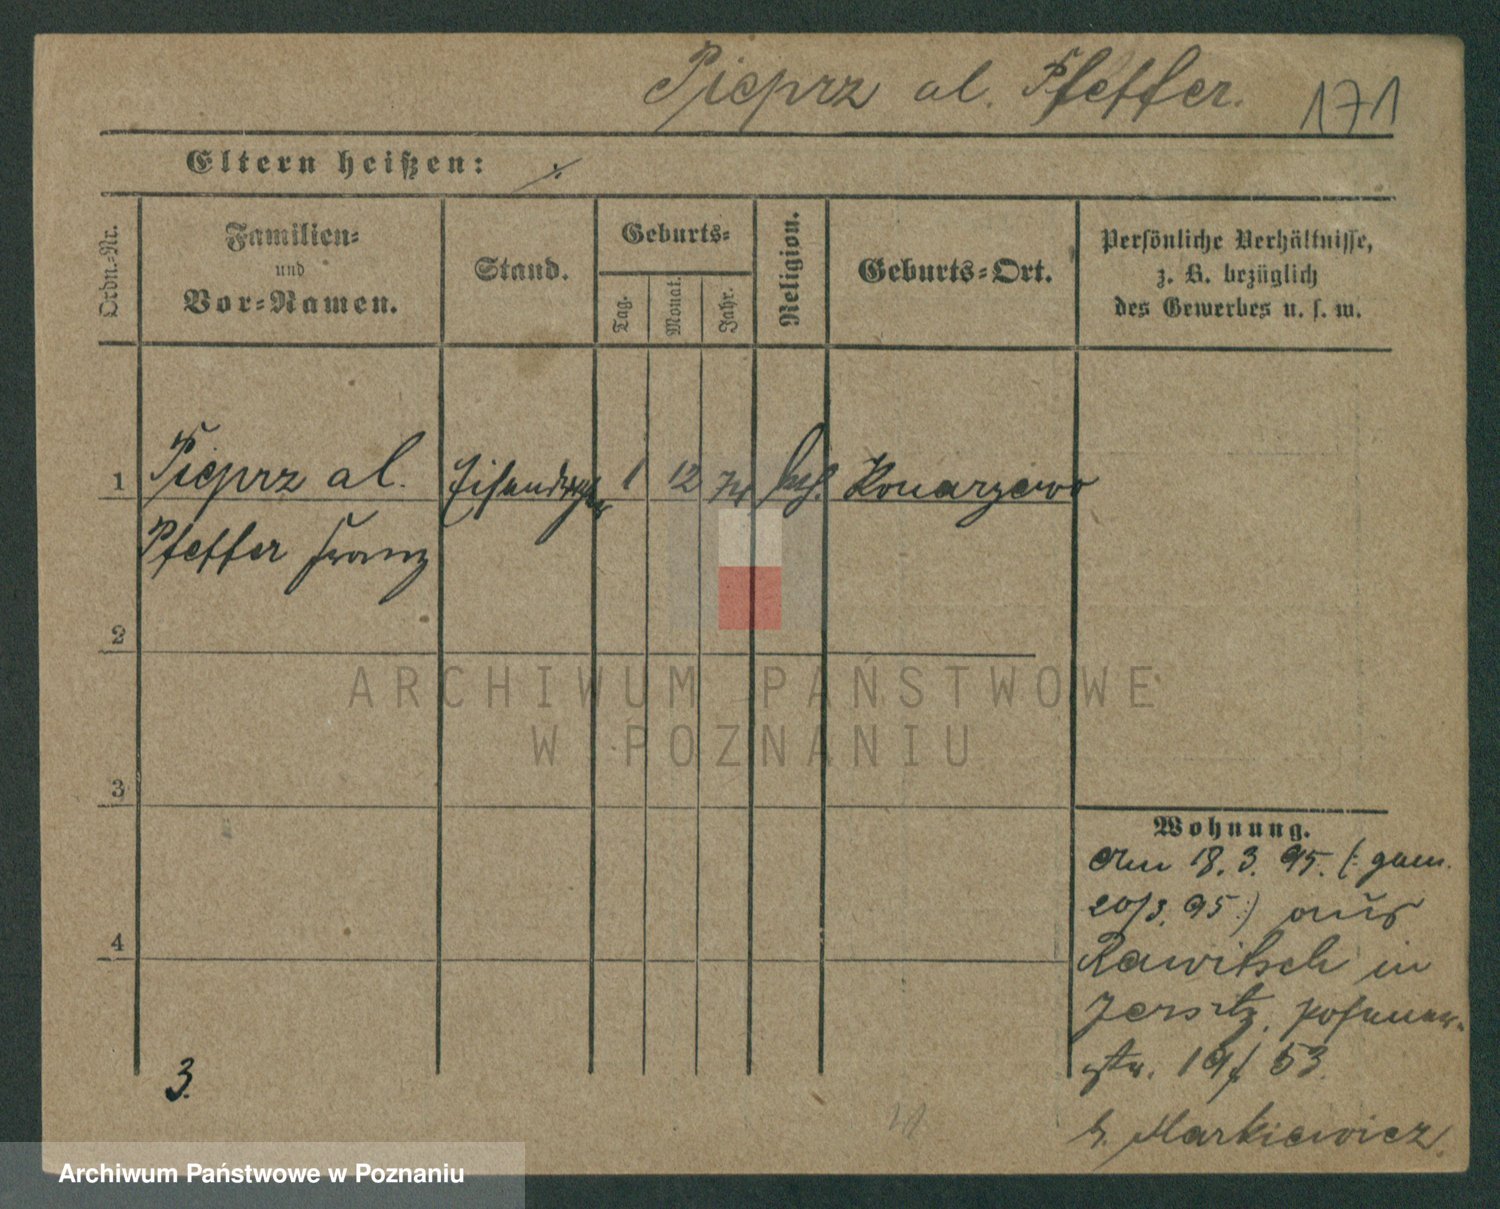 Pieprz al. Pfeffer. 171
Eltern heißen: ⁒
Ordn.-Nr.
Familien-
und
Vor-Namen.
Stand.
Geburts-
Tag.
Monat.
Jahr.
Religion.
Geburts-Ort.
Persönliche Verhältnisse,
z. B. bezüglich
des Gewerbes u. s. w.
1 Pieprz al. Eisendreher 1 12 74 kath. Konarzewo
Pfeffer Franz
2
3
4
Wohnung.
Am 18. 3. 95. (: gem.
20/3. 95 :) aus
Rawitsch in
Jersitz, Posener-
str. 19/53.
b. Markiewicz.
3.
ARCHIWUM PAŃSTWOWE
W POZNANIU
Archiwum Państwowe w Poznaniu